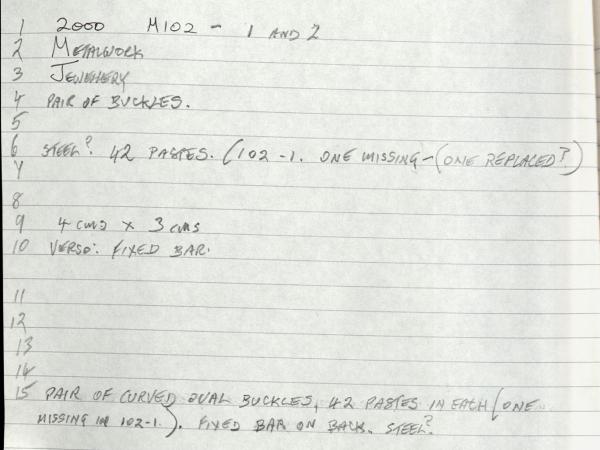 1 2000 M102 - 1 AND 2
2 METALWORK
3 JEWELLERY
4 PAIR OF BUCKLES.
5
6 STEEL? 42 PASTES. (102-1. ONE MISSING - (ONE REPLACED?)
7
8
9 4 cms x 3 cms
10 VERSO: FIXED BAR.
11
12
13
14
15 PAIR OF CURVED OVAL BUCKLES, 42 PASTES IN EACH (ONE
MISSING IN 102-1.). FIXED BAR ON BACK. STEEL?